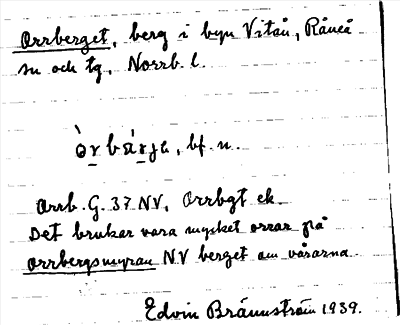 Orrberget, berg i byn Vitån, Råneå
sn och tg, Norrb. l.
bf. n.
Orrb. G. 37 NV, Orrbgt ek.
Det brukar vara mycket orrar på
Orrbergsmyran NV berget om vårarna.
Edvin Brännström 1939.